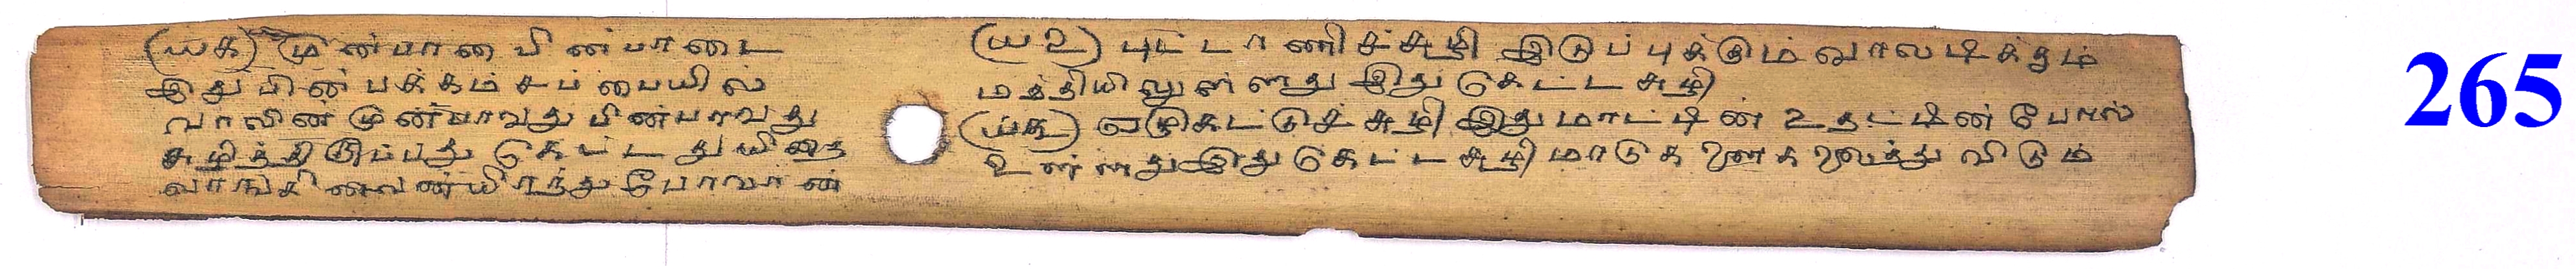 (ய௧) முன்பாடை பின்பாடை
இதுபின் பக்கம் சப்பையில்
வாலின் முன்பாவது பின்பாவது
சுழித்திருப்பது கெட்டது யிதை
வாங்கினவன்யிறந்து போவான்
(ய௨) புட்டாணிச்சுழி இடுப்புக்கும் வாலடிக்கும்
மத்தியிலுள்ளது இது கெட்ட சுழி
(ய௩) இதுமாட்டின் உதட்டின் போல்
உள்ளதுஇது கெட்ட சுழி மாடு விடும்
265